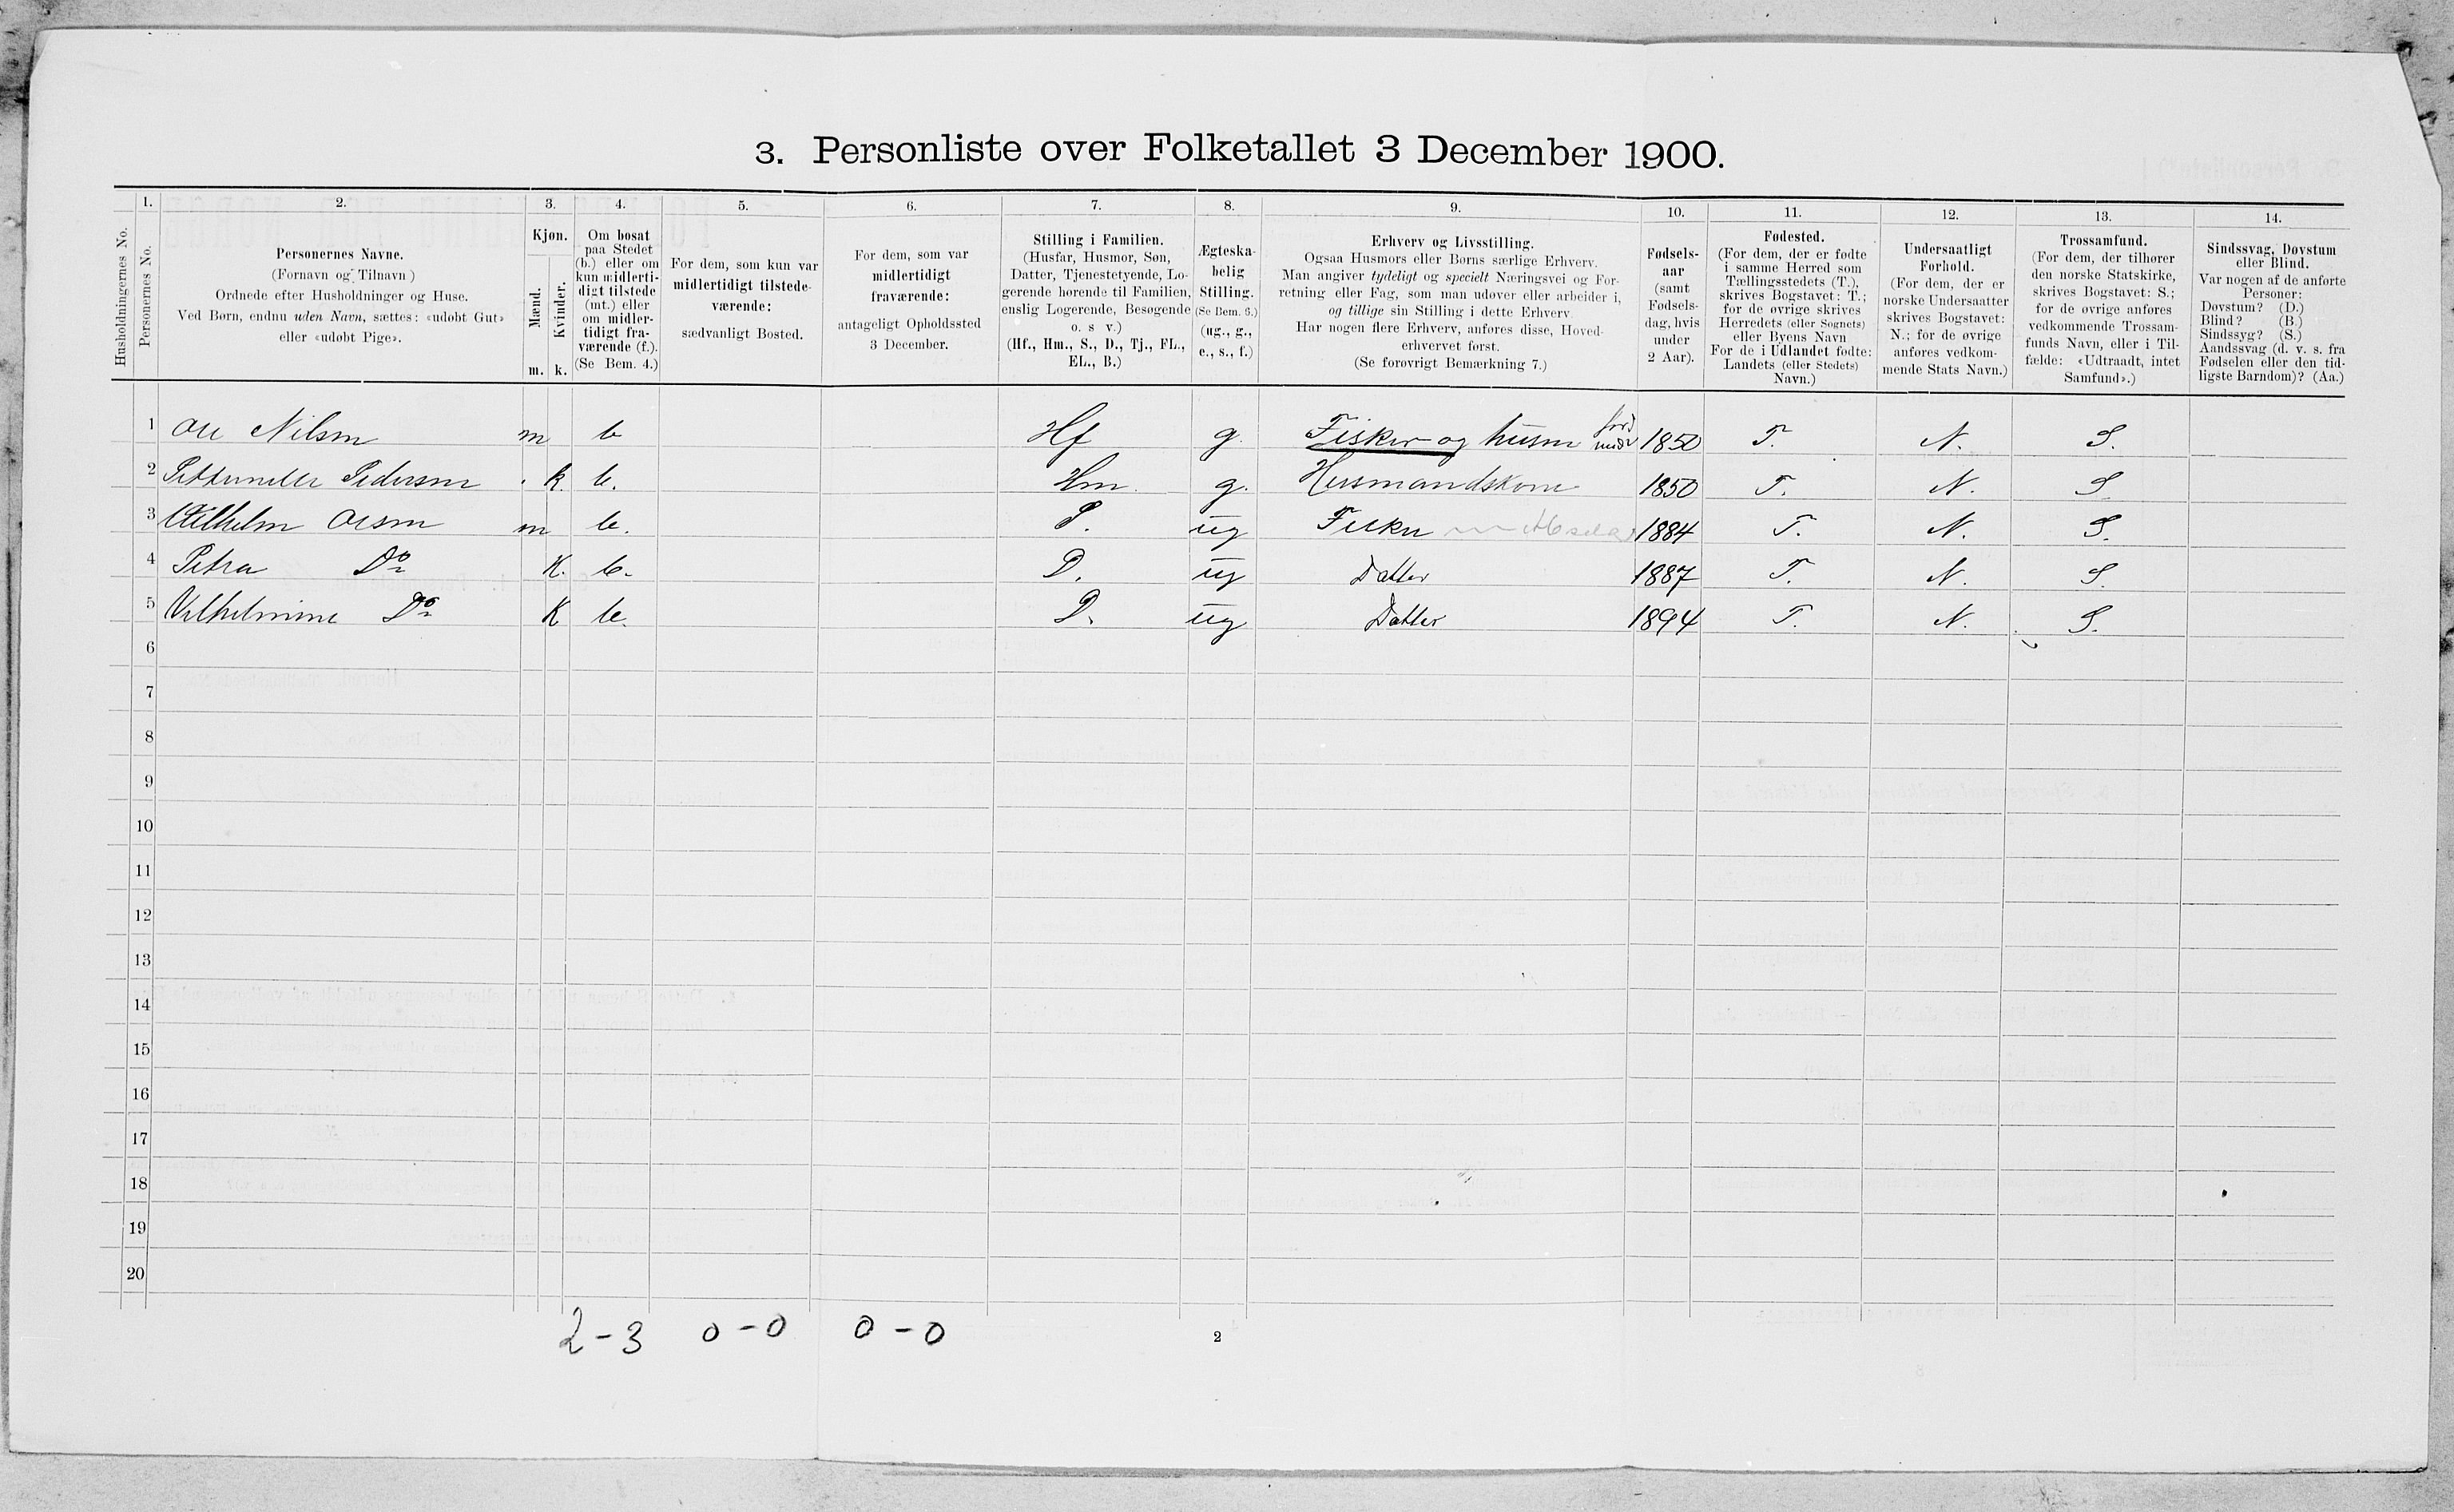 3. Personliste over Folketallet 3 December 1900.
Husholdningernes No.
1.
Personernes No.
2.
Personernes Navne.
(Fornavn og Tilnavn)
Ordnede efter Husholdninger og Huse.
Ved Børn, endnu uden Navn, sættes: «udøbt Gut»
eller «udøbt Pige».
3.
Kjøn.
Mænd. Kvinder.
m. k.
4.
Om bosat
paa Stedet
(b.) eller om
kun midlerti-
digt tilstede
(mt.) eller
om midler-
tidigt fra-
værende (f.).
(Se Bem. 4.)
5.
For dem, som kun var
midlertidigt tilstede-
værende:
sædvanligt Bosted.
6.
For dem, som var
midlertidigt
fraværende:
antageligt Opholdssted
3 December.
7.
Stilling i Familien.
(Husfar, Husmor, Søn,
Datter, Tjenestetyende, Lo-
gerende hørende til Familien,
enslig Logerende, Besøgende
o. s v.)
(Hf., Hm., S., D., Tj., FL.,
EL., B.)
8.
Ægteska-
belig
Stilling.
(Se Bem. 6.)
(ug., g.,
e., s., f.)
9.
Erhverv og Livsstilling.
Ogsaa Husmors eller Børns særlige Erhverv.
Man angiver tydeligt og specielt Næringsvei og For-
retning eller Fag, som man udøver eller arbeider i,
og tillige sin Stilling i dette Erhverv.
Har nogen flere Erhverv, anføres disse, Hoved-
erhvervet først.
(Se forøvrigt Bemærkning 7.)
10.
Fødsels-
aar
(samt
Fødsels-
dag, hvis
under
2 Aar).
11.
Fødested.
(For dem, der er fødte
i samme Herred som
Tællingsstedets (T.),
skrives Bogstavet: T.;
for de øvrige skrives
Herredets (eller Sognets)
eller Byens Navn
For de i Udlandet fødte:
Landets (eller Stedets)
Navn.)
12.
Undersaatligt
Forhold.
(For dem, der er
norske Undersaatter
skrives Bogstavet:
N.; for de øvrige
anføres vedkom-
mende Stats Navn.)
13.
Trossamfund.
(For dem, der tilhører
den norske Statskirke,
skrives Bogstavet: S.;
for de øvrige anføres
vedkommende Trossam-
funds Navn, eller i Til-
fælde: «Udtraadt, intet
Samfund».)
14.
Sindssvag, Døvstum
eller Blind.
Var nogen af de anførte
Personer:
Døvstum? (D.)
Blind? (B.)
Sindssyg? (S.)
Aandssvag (d. v. s. fra
Fødselen eller den tid-
ligste Barndom)? (Aa.)
1 Ole Nilsen m b Hf g. Fisker og husm med jord 1850 T. N. S.
2 Pedersen k. b. Hm g. Husmandskone 1850 T. N. S.
3 Vilhelm Olsen m b. S. ug Fisker 1884 T. N. S.
4 Petra Do K. b. D. ug Datter 1887 T. N. S.
5 Vilhelmine Do K b. D. ug Datter 1894 T. N. S.
6
7
8
9
10
11
12
13
14
15
16
17
18
19
20
2-3 0-0 0-0
2